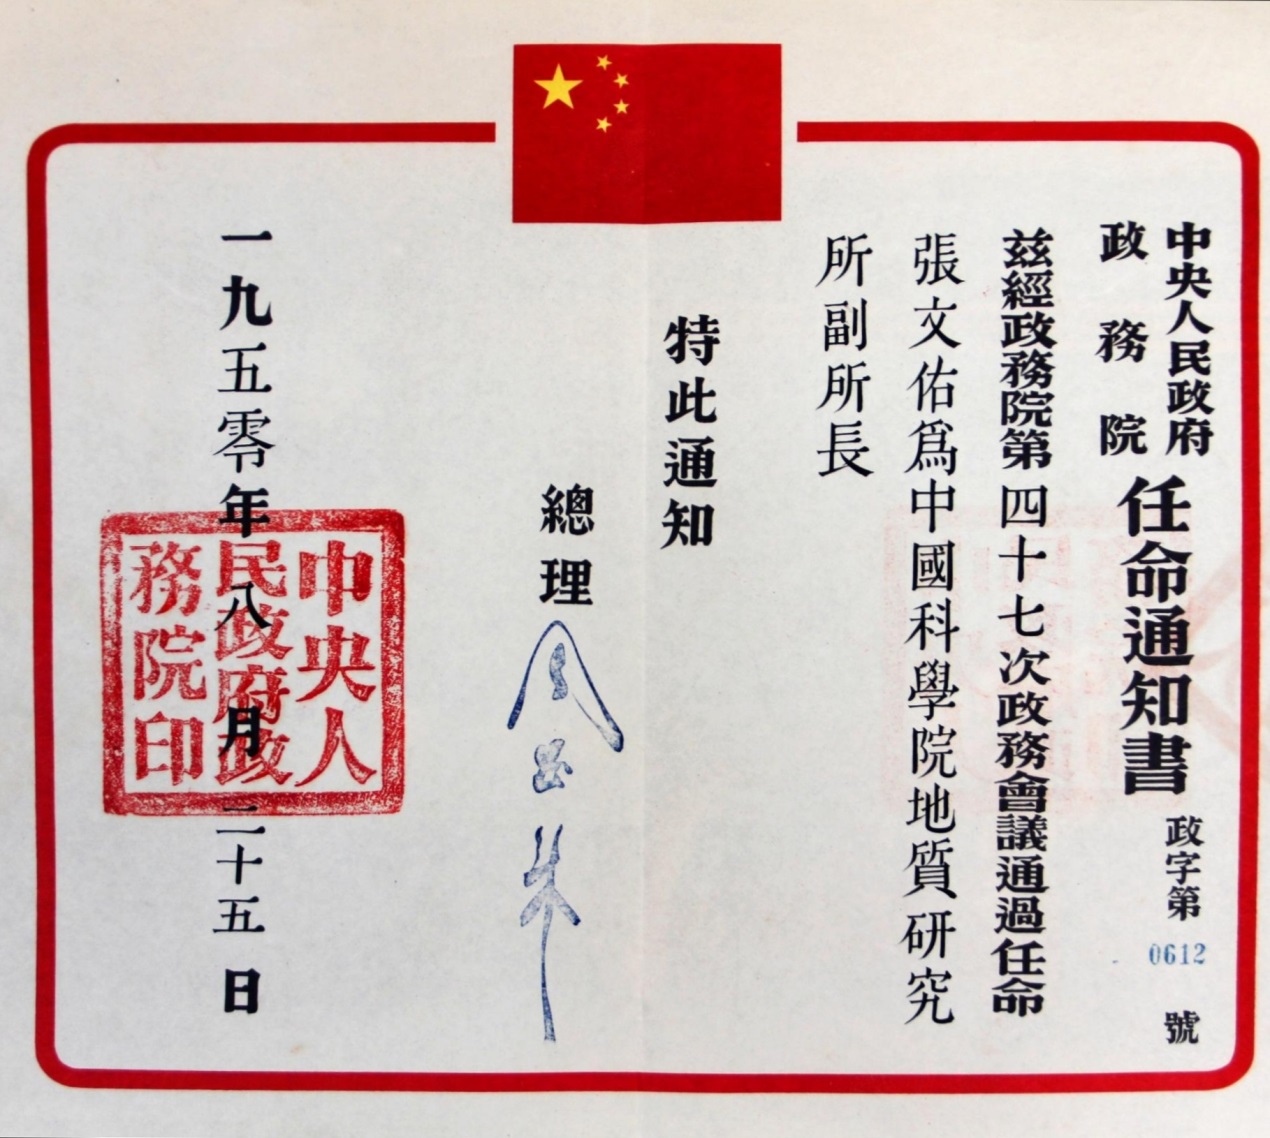 中央人民政府
政務院
任命通知書
政字第0612號
茲經政務院第四十七次政務會議通過任命
張文佑爲中國科學院地質研究
所副所長
特此通知
總理周恩來
一九五零年八月二十五日
中央人
民政府政
務院印